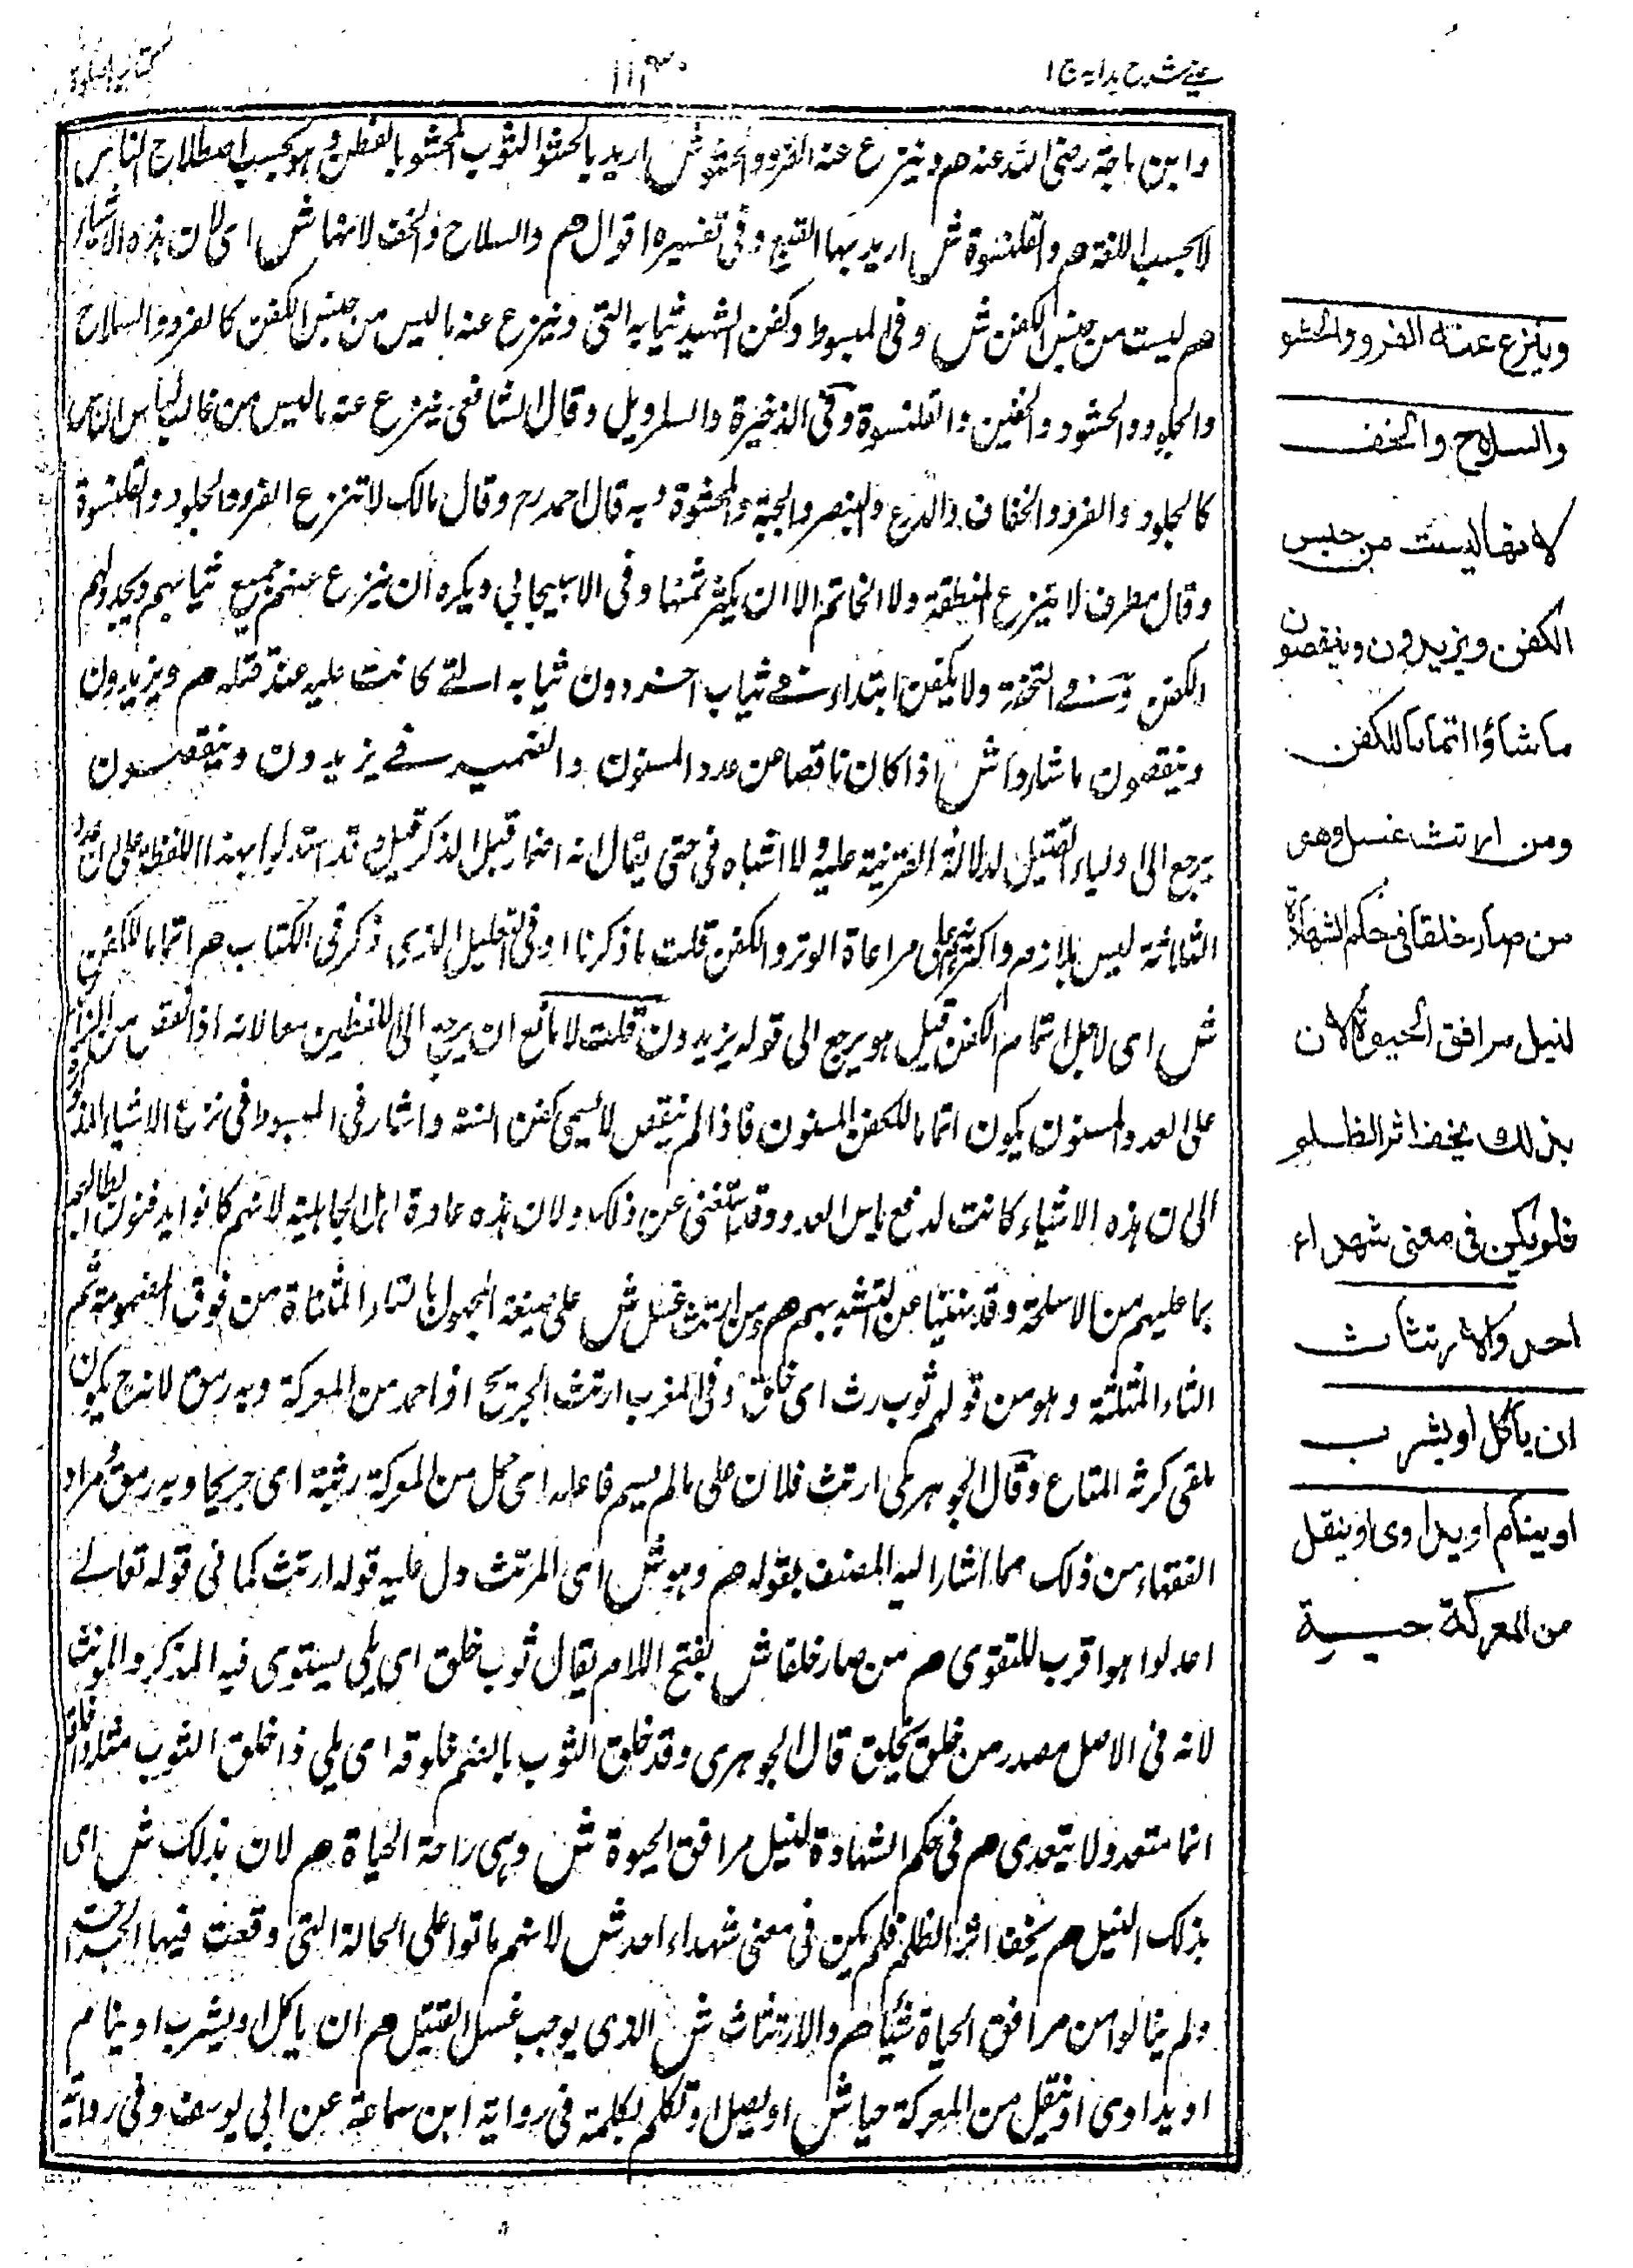 عینی شرح ہدایہ ج ١
١١٣٠
کتاب الصلوة
وابن ماجة رضی الله عنه هم وینزع عنه الفرو والحشو ش ارید بالحشو الثوب المحشو بالقطن وهو بحسب اصطلاح الناس
لا بحسب اللغة هم والقلنسوة ش ارید بها القبع وفی تفسیره اقوال هم والسلاح والخف لانها ش ای لان هذه الاشیاء
هم لیست من جنس الکفن ش وفی المبسوط وکفن الشهید ثیابه التی وینزع عنه ما لیس من جنس الکفن کالفرو والسلاح
والجلود والحشو والخفین والقلنسوة وفی الذخیرة والسراویل وقال الشافعی ینزع عنه ما لیس من غالب لباس الناس
کالجلود والفرو والخفاف والدرع والجبة والمحشوة وبه قال احمد رح وقال مالک لا تنزع الفرو والجلود والقلنسوة
وقال مطرف لا ینزع المنطقة ولا الخاتم الا ان یکثر ثمنها وفی الاسبیجابی ویکره ان ینزع عنهم جمیع ثیابهم ویجدد لهم
الکفن وفی التحفة ولا یکفن ابتداء فی ثیاب اخر دون ثیابه التی کانت علیه عند قتله هم ویزیدون
وینقصون ما شاءوا ش اذا کان ناقصا من عدد المسنون والضمیر فی یزیدون وینقصون
یرجع الی اولیاء القتیل لدلالة القرینة علیه ولا اشتباه فی حتی یقال انه اضمار قبل الذکر قیل وقد استدلوا بهذا اللفظ علی ان عدد
الثلاثة لیس بلازم واکثرهم علی مراعاة الوتر والکفن قلت ما ذکرنا اوفی التعلیل الذی ذکر فی الکتاب هم اتماما للکفن
ش ای لاجل اتمام الکفن قیل هو یرجع الی قوله یزیدون قلت لا مانع ان یرجع الی اللفظین معا لانه اذا نقص من الزائد
علی العدد المسنون یکون اتماما للکفن المسنون فاذا لم ینقص لا یسمی کفن السنة واشار فی المبسوط فی نزع الاشیاء المذکورة
الی ان هذه الاشیاء کانت لدفع باس العدو وقد استغنی عن ذلک ولان هذه عادة اهل الجاهلیة لانهم کانوا یدفنون ابطالهم
بما علیهم من الاسلحة وقد نهینا عن التشبه بهم هم ومن ارتث غسل ش علی صیغة المجهول بالتاء المثناة من فوق المضمومة ثم
الثاء المثلثة وهو من قولهم ثوب رث ای خلق وفی المغرب ارتث الجریح اذا حمل من المعرکة وبه رمق لانه ح یکون
ملقی کرثة المتاع وقال الجوهری ارتث فلان علی ما لم یسم فاعله ای حمل من المعرکة رثیثا ای جریحا وبه رمق ومراد
الفقهاء من ذلک مما اشار الیه المصنف بقوله هم وهو ش ای المرتث دل علیه قوله ارتث کما فی قوله تعالی
اعدلوا هو اقرب للتقوی هم من صار خلقا ش بفتح اللام یقال ثوب خلق ای بلی یستوی فیه المذکر والمونث
لانه فی الاصل مصدر من خلق یخلق قال الجوهری وقد خلق الثوب بالضم خلوقه ای بلی واخلق الثوب مثله
انما متعد ولا یتعدی هم فی حکم الشهادة لنیل مرافق الحیوة ش وهی راحة الحیاة هم لان بذلک ش ای
بذلک النیل هم یخف اثر الظلم فلم یکن فی معنی شهداء احد ش لانهم ماتوا علی الحالة التی وقعت فیها الجراحت
ولم ینالوا من مرافق الحیاة شیئا هم والارتثاث ش الذی یوجب غسل القتیل هم ان یاکل او یشرب او ینام
او یداوی او ینقل من المعرکة حیا ش او یصلی او تکلم بکلمة فی روایة ابن سماعة عن ابی یوسف وفی روایة
وینزع عنه الفرو والحشو
والسلاح والخف
لانها لیست من جنس
الکفن ویزیدون وینقصون
ما شاؤا اتماما للکفن
ومن ارتث غسل وهو
من صار خلقا فی حکم الشهادة
لنیل مرافق الحیوة لان
بذلک یخف اثر الظلم
فلم یکن فی معنی شهداء
احد والارتثاث
ان یاکل او یشرب
او ینام او یداوی او ینقل
من المعرکة حیا